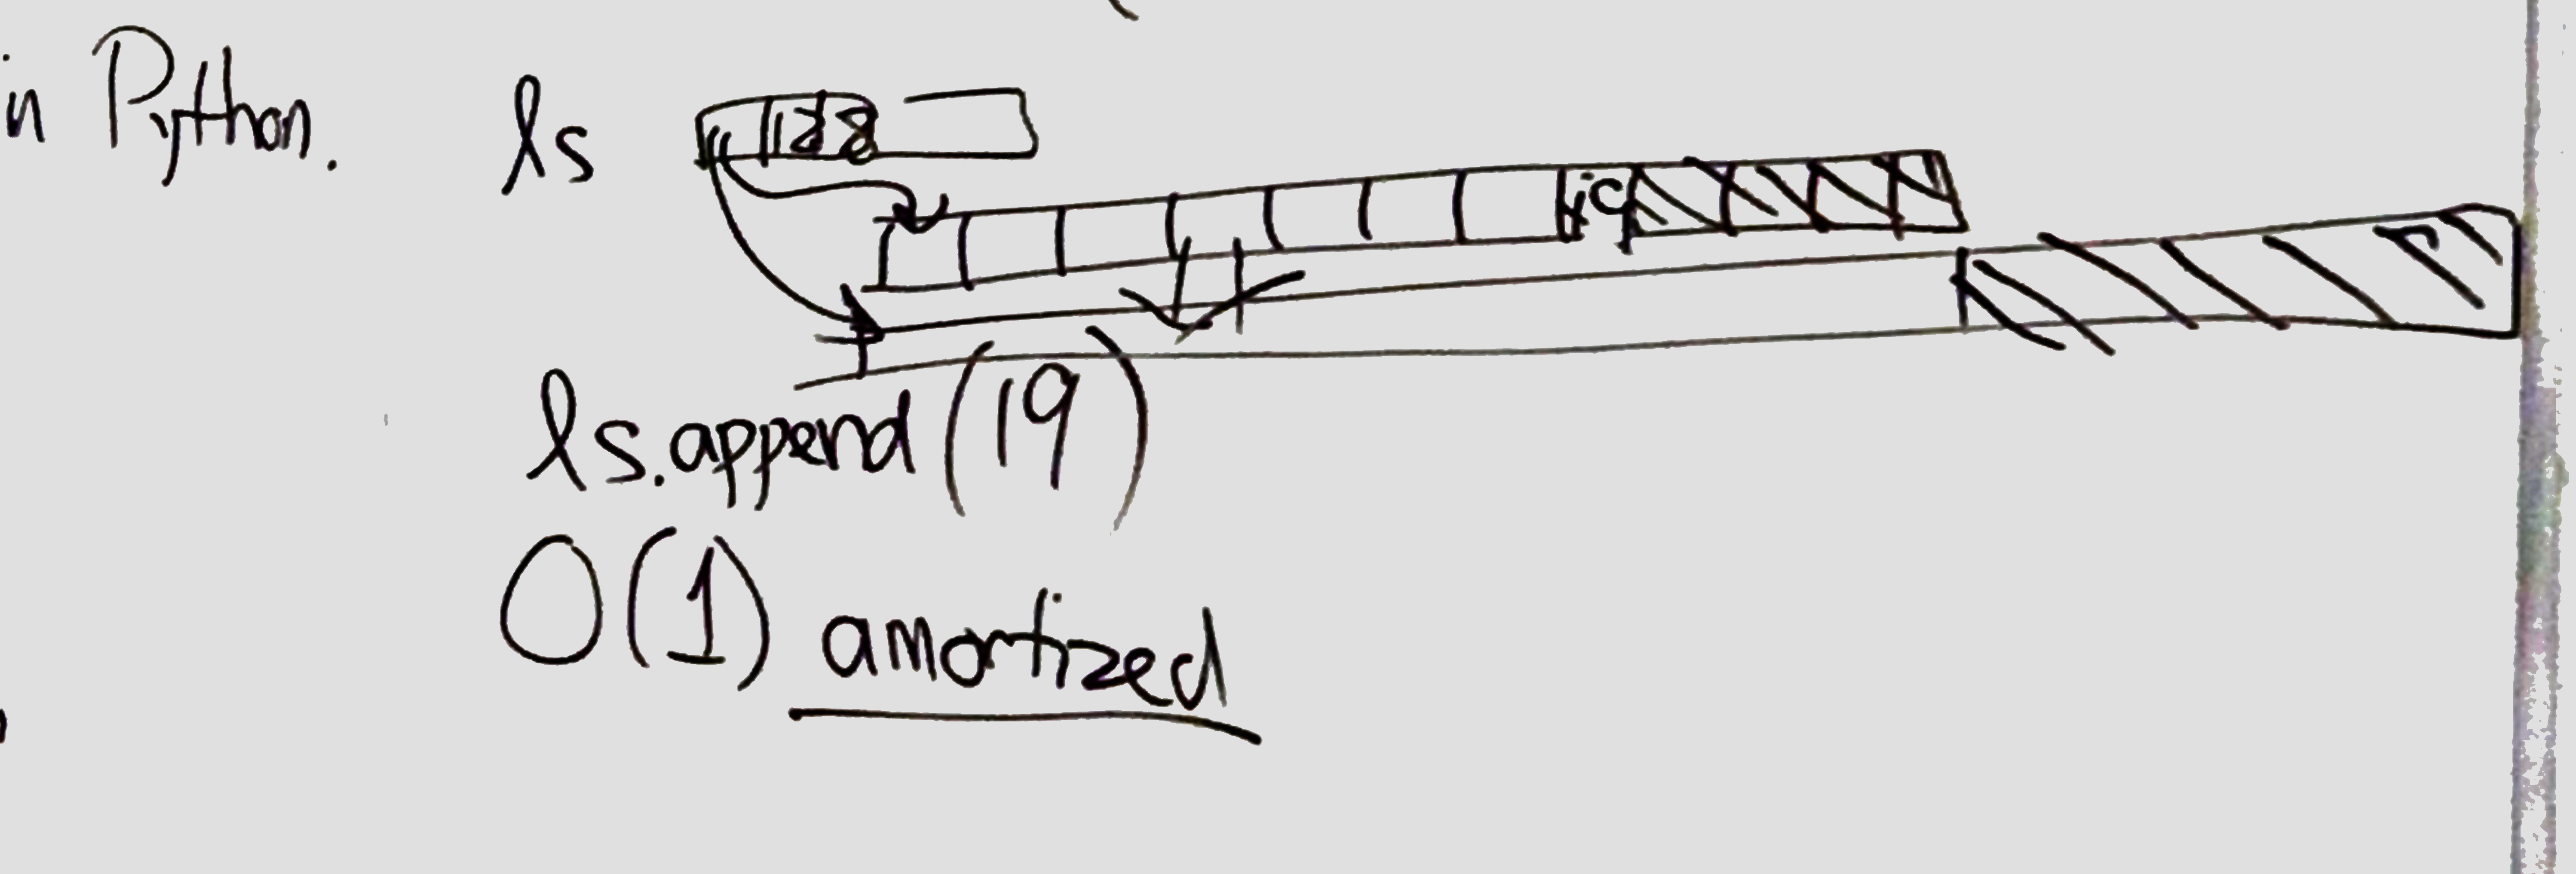 in Python.
ls
19
ls.append(19)
O(1) amortized